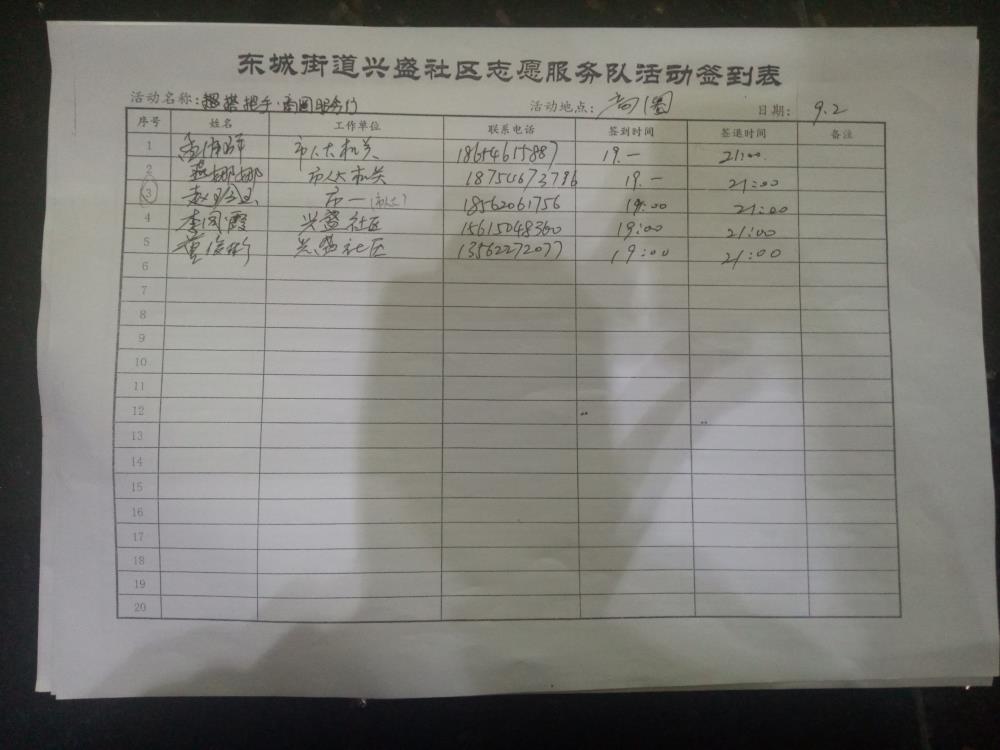 东城街道兴盛社区志愿服务队活动签到表
活动名称: 搭把手·商圈服务行 活动地点: 商圈 日期: 9.2
序号 姓名 工作单位 联系电话 签到时间 签退时间 备注
1 市人大机关 18654615887 19.— 21:00
2 燕娜娜 市人大机关 18754673786 19.— 21:00
3 市一 18562061756 19:00 21:00
4 李凤霞 兴盛社区 15615048360 19:00 21:00
5 董 兴盛社区 13562272077 19:00 21:00
6
7
8
9
10
11
12
13
14
15
16
17
18
19
20